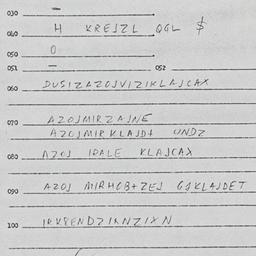 030 –
040 H KREJZL QGL $
050 0
051 – 052
060 DUSIZAZOJVIZIKLAJCAX
070 AZOJMIRZAJNE
AZOJMIRKLAJD+ UNDZ
080 AZOJ IDALE KLAJCAX
090 AZOJ MIRHOB+ZEJ GJKLAJDET
100